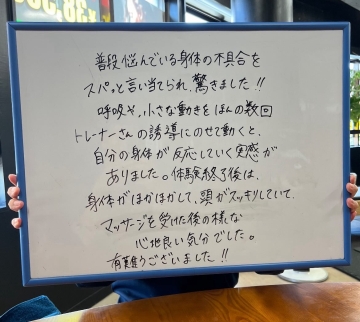 普段悩んでいる身体の不具合を
スパッと言い当てられ、驚きました!!
呼吸や、小さな動きをほんの数回
トレーナーさんの誘導にのせて動くと、
自分の身体が反応していく実感が
ありました。体験終了後は、
身体がぽかぽかして、頭がスッキリしていて、
マッサージを受けた後の様な
心地良い気分でした。
有難うございました!!